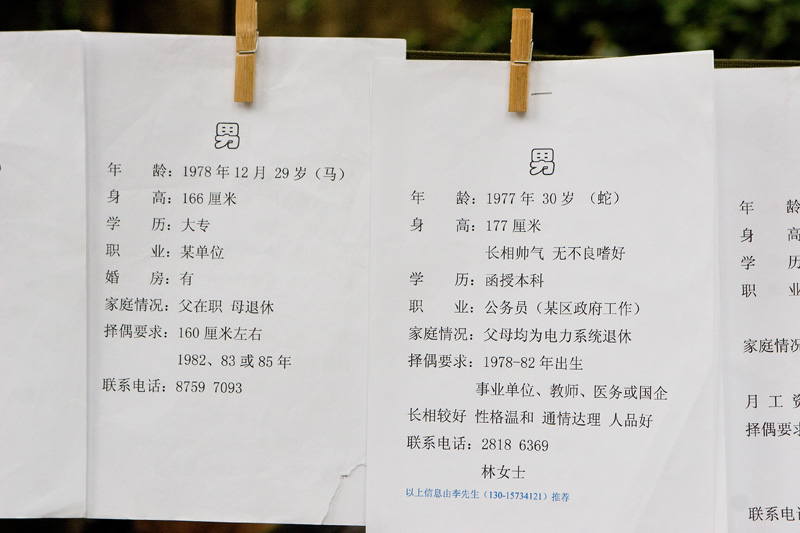 男
年 龄：1978 年 12 月 29 岁（马）
身 高：166 厘米
学 历：大专
职 业：某单位
婚 房：有
家庭情况：父在职 母退休
择偶要求：160 厘米左右
1982、83 或 85 年
联系电话：8759 7093
男
年 龄：1977 年 30 岁 （蛇）
身 高：177 厘米
长相帅气 无不良嗜好
学 历：函授本科
职 业：公务员（某区政府工作）
家庭情况：父母均为电力系统退休
择偶要求：1978-82 年出生
事业单位、教师、医务或国企
长相较好 性格温和 通情达理 人品好
联系电话：2818 6369
林女士
以上信息由李先生（130-15734121）推荐
年 龄
身 高
学 历
职 业
家庭情况
月 工 资
择偶要求
联系电话